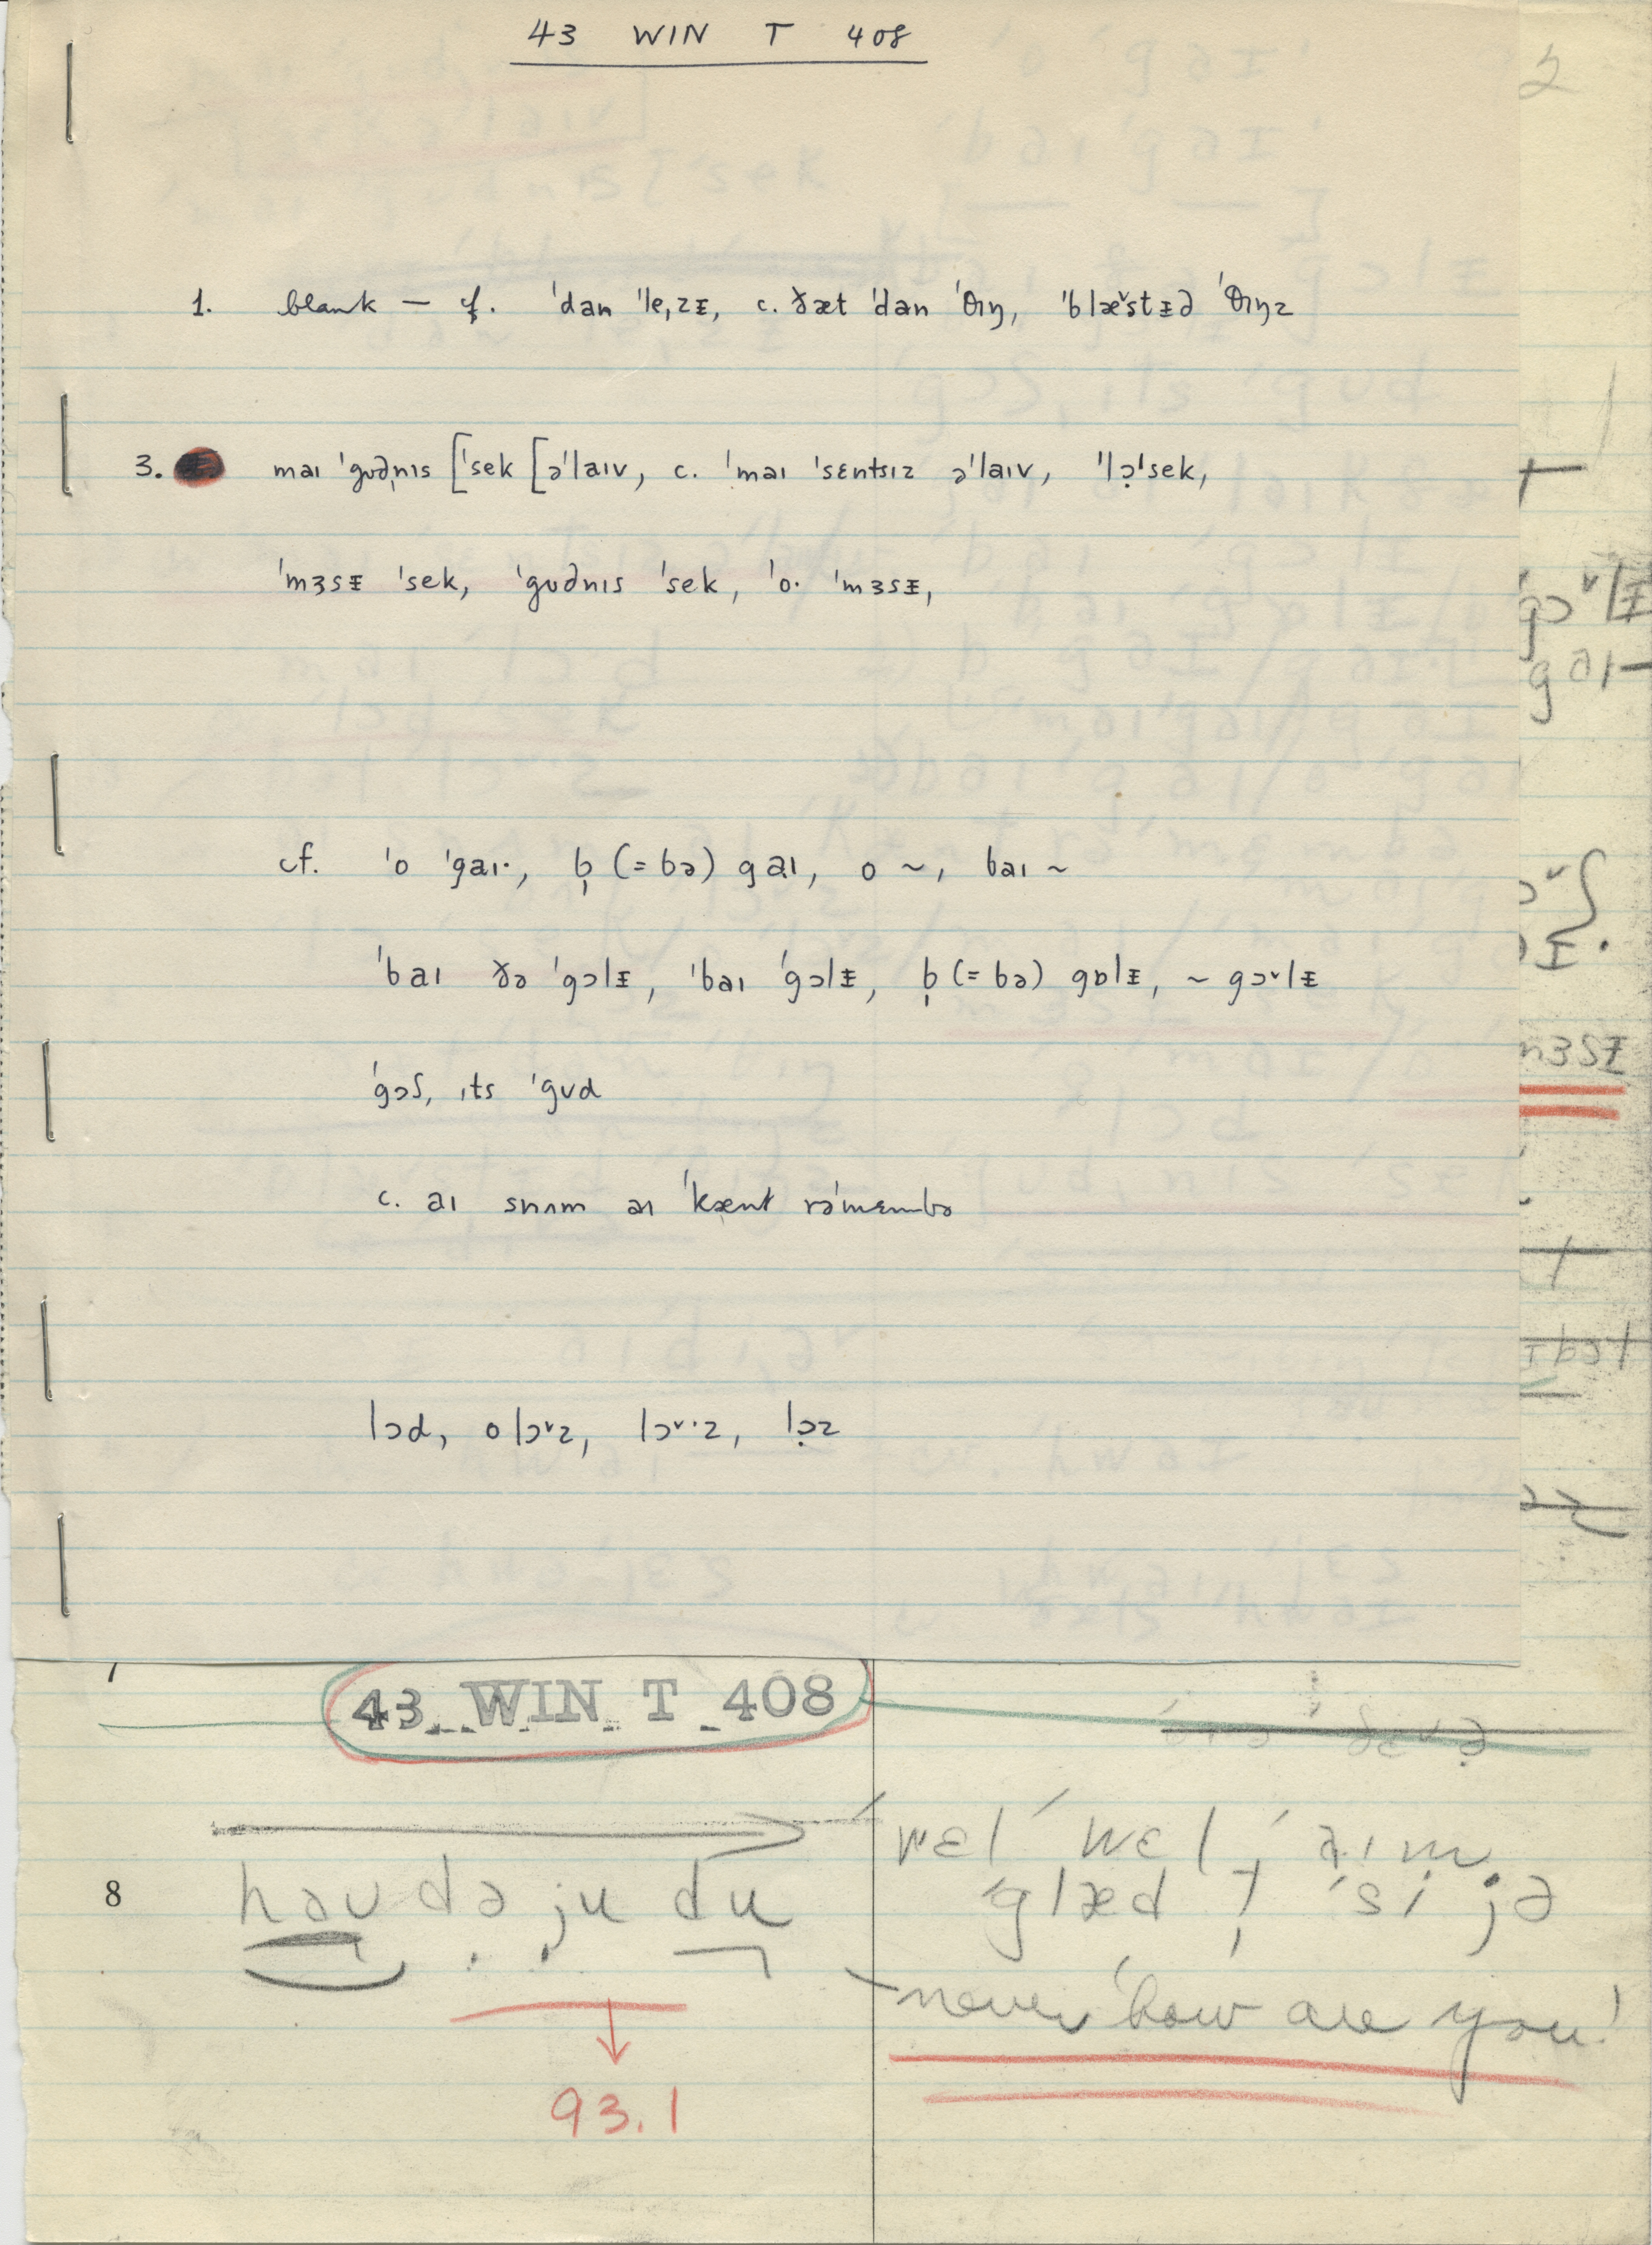 43 WIN T 408
2
1. blank — cf. ˈdan ˈleˌzɪ̵, c. ðæt ˈdan ˈθɪŋ, ˈblæ˅stɪ̵d ˈθɪŋz
3. maɪ ˈgʊdnɪs [ˈsek [əˈlaɪv, c. ˈmaɪ ˈsɛntsɪz əˈlaɪv, ˈlɔ̣ˈsek,
ˈmɜsɪ̵ ˈsek, ˈgʊdnɪs ˈsek, ˈo· ˈmɜsɪ̵,
cf. ˈo ˈgaɪ·, b̩ (= bə) gaɪ, o ~, baɪ ~
ˈbaɪ ðə ˈgɔlɪ̵, ˈbaɪ ˈgɔlɪ̵, b̩ (= bə) gɒlɪ̵, ~ gɔ˅lɪ̵
ˈgɔʃ, ɪts ˈgʊd
c. aɪ snʌm aɪ ˈkænt rəˈmɛmbə
lɔd, o lɔ˅z, lɔ˅·z, lɔ̣z
43 WIN T 408
8 haʊ də ju du
ˈwɛl ˈwɛl, ˈaɪm
ˈglæd t̩ ˈsi jə
never ˈhow are you!
93.1